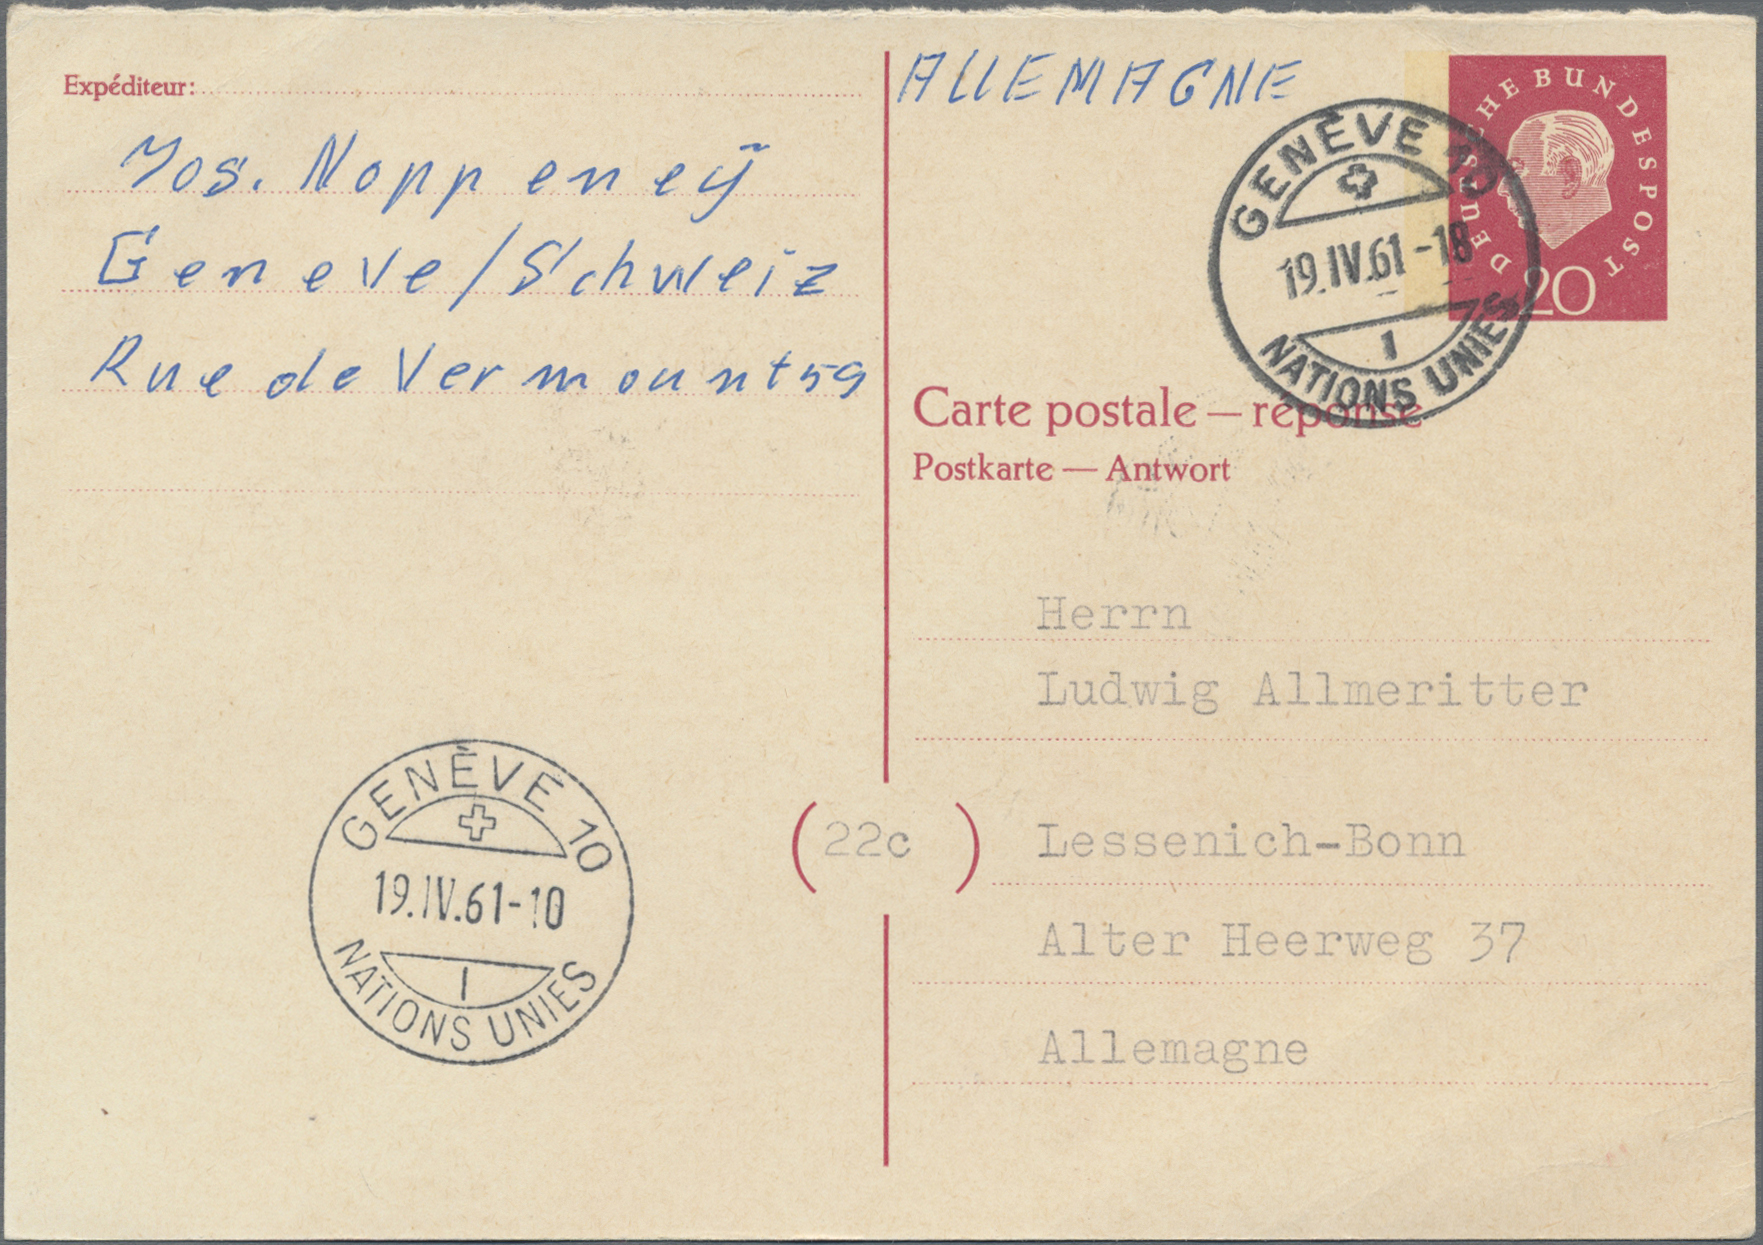 Expéditeur:
Jos. Noppeneÿ
Geneve/Schweiz
Rue de Vermount 59
ALLEMAGNE
DEUTSCHE BUNDESPOST
20
GENÈVE 10
19.IV.61-18
1
NATIONS UNIES
Carte postale — réponse
Postkarte — Antwort
Herrn
Ludwig Allmeritter
(22c) Lessenich-Bonn
Alter Heerweg 37
Allemagne
GENÈVE 10
19.IV.61-10
1
NATIONS UNIES